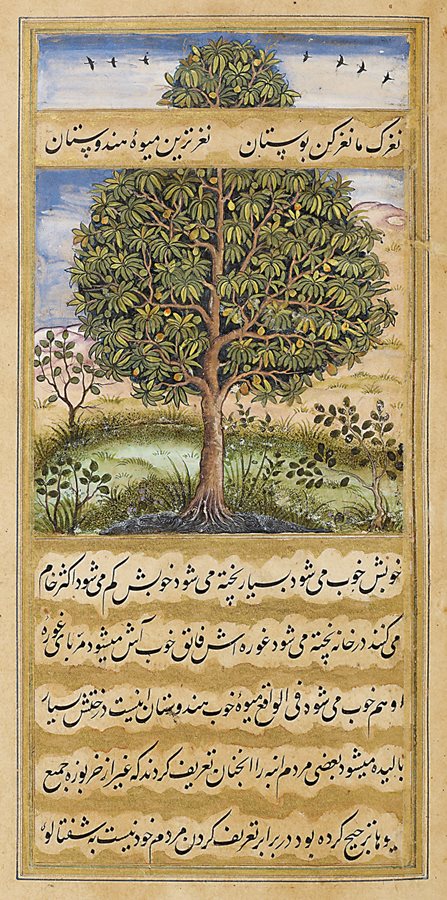 نغزک ما نغز کن بوستان نغزترین میوهٔ هندوستان
خوبش خوب می شود بسیار پخته می شود خوبش کم می شود اکثر خام
می کنند در خانه پخته می شود غوره اش فائق خوب آش میشود مربای غوره
او هم خوب می شود فی الواقع میوهٔ خوب هندوستان اینست درختش بسیار
بالیده میشود بعضی مردم انبه را انچنان تعریف کردند که غیر از خربوزه جمیع
میوها ترجیح کرده بود در برابر تعریف کردن مردم خود نیست به شفتالوی